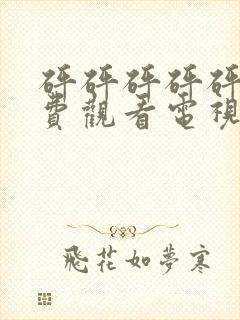 砰砰砰砰砰
費觀看電視
飛花如夢寒